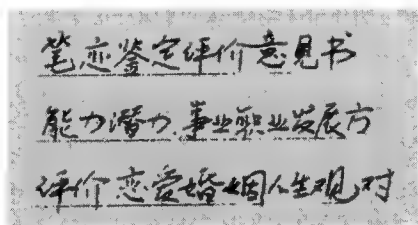 笔恋鉴定评价意见书
能力潜力.事业职业发展方
评价恋爱婚姻人生观对